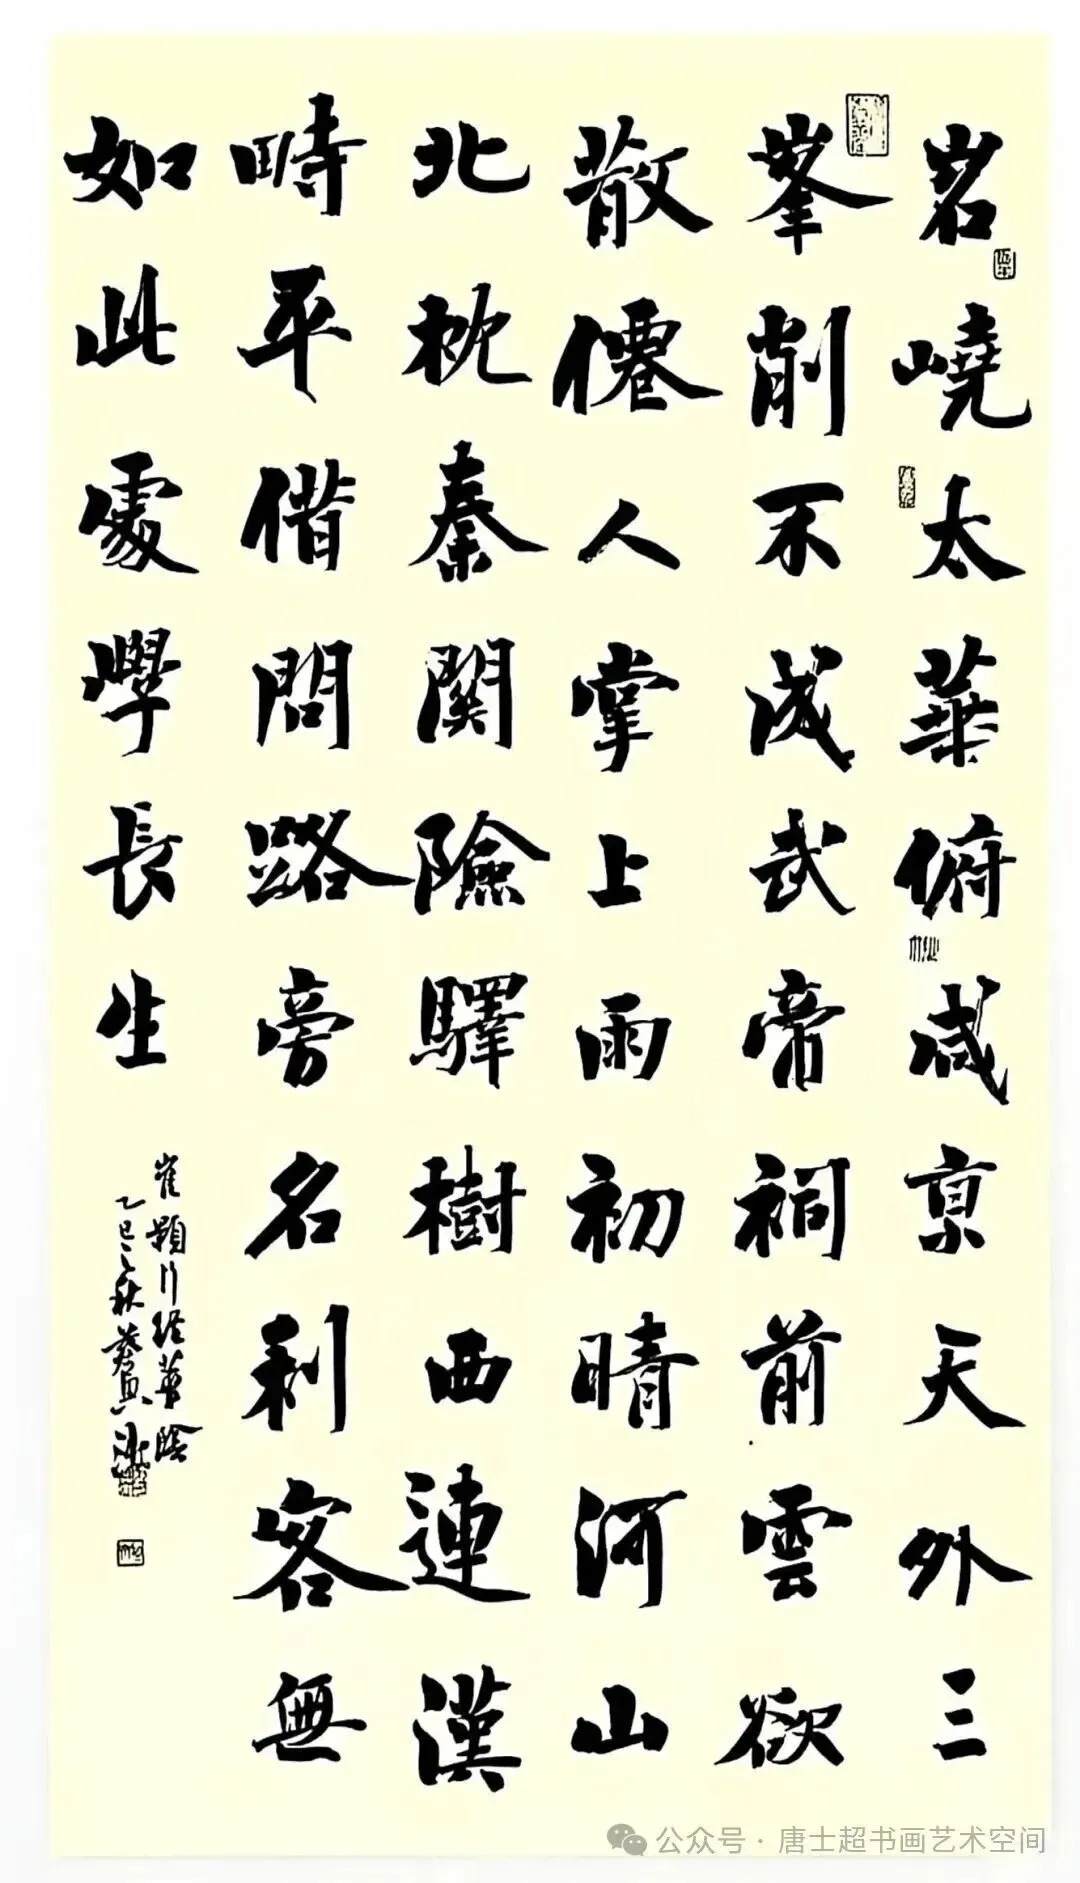 岧嶢太華俯咸京天外三
峯削不成武帝祠前雲欲
散僊人掌上雨初晴河山
北枕秦關險驛樹西連漢
畤平借問路旁名利客無
如此處學長生
崔顥行經華陰
乙巳之秋
公众号 · 唐士超书画艺术空间